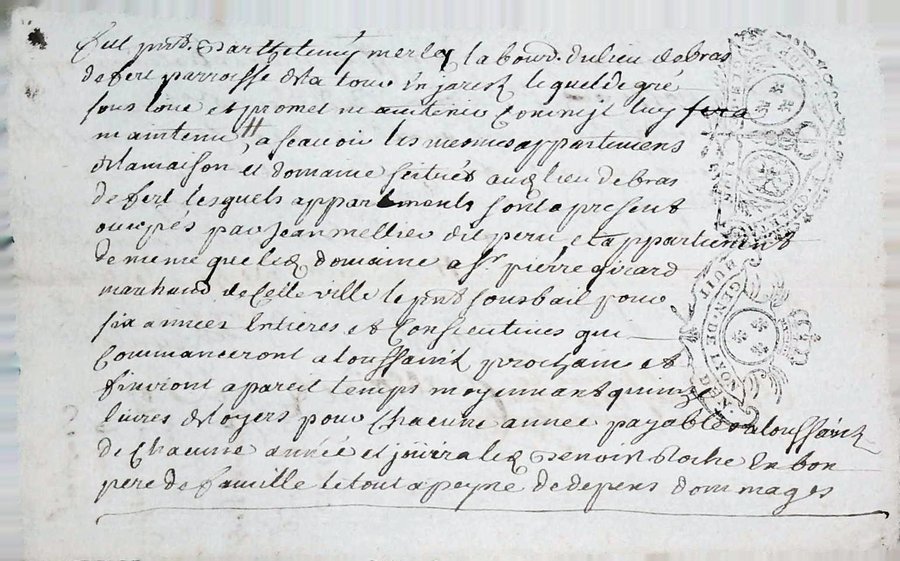 fut pnt. Barthelemy merley labour. du lieu de bras
de fert parroisse de la tour en jarest lequel de gré
sous loue et promet maintenir comme il luy sera
maintenu # a scavoir les mesmes appartemens
de la maison et domaine scitués aud lieu de bras
de fert lesquels appartements sont a present
occupés par jean mellier dit peru et appartienent
de meme que led domaine a sr. pierre girard
marchand de cette ville le pnt sousbail pour
six années entieres et consecutives qui
commanceront a toussaint prochain et
finiront a pareil temps moyennant quinze
livres de loyers pour chacune année payable a toussaint
de chacune année et jouira led benoit Roche en bon
pere de famille le tout a peyne de depens dommages
GEN. DE
HUIT